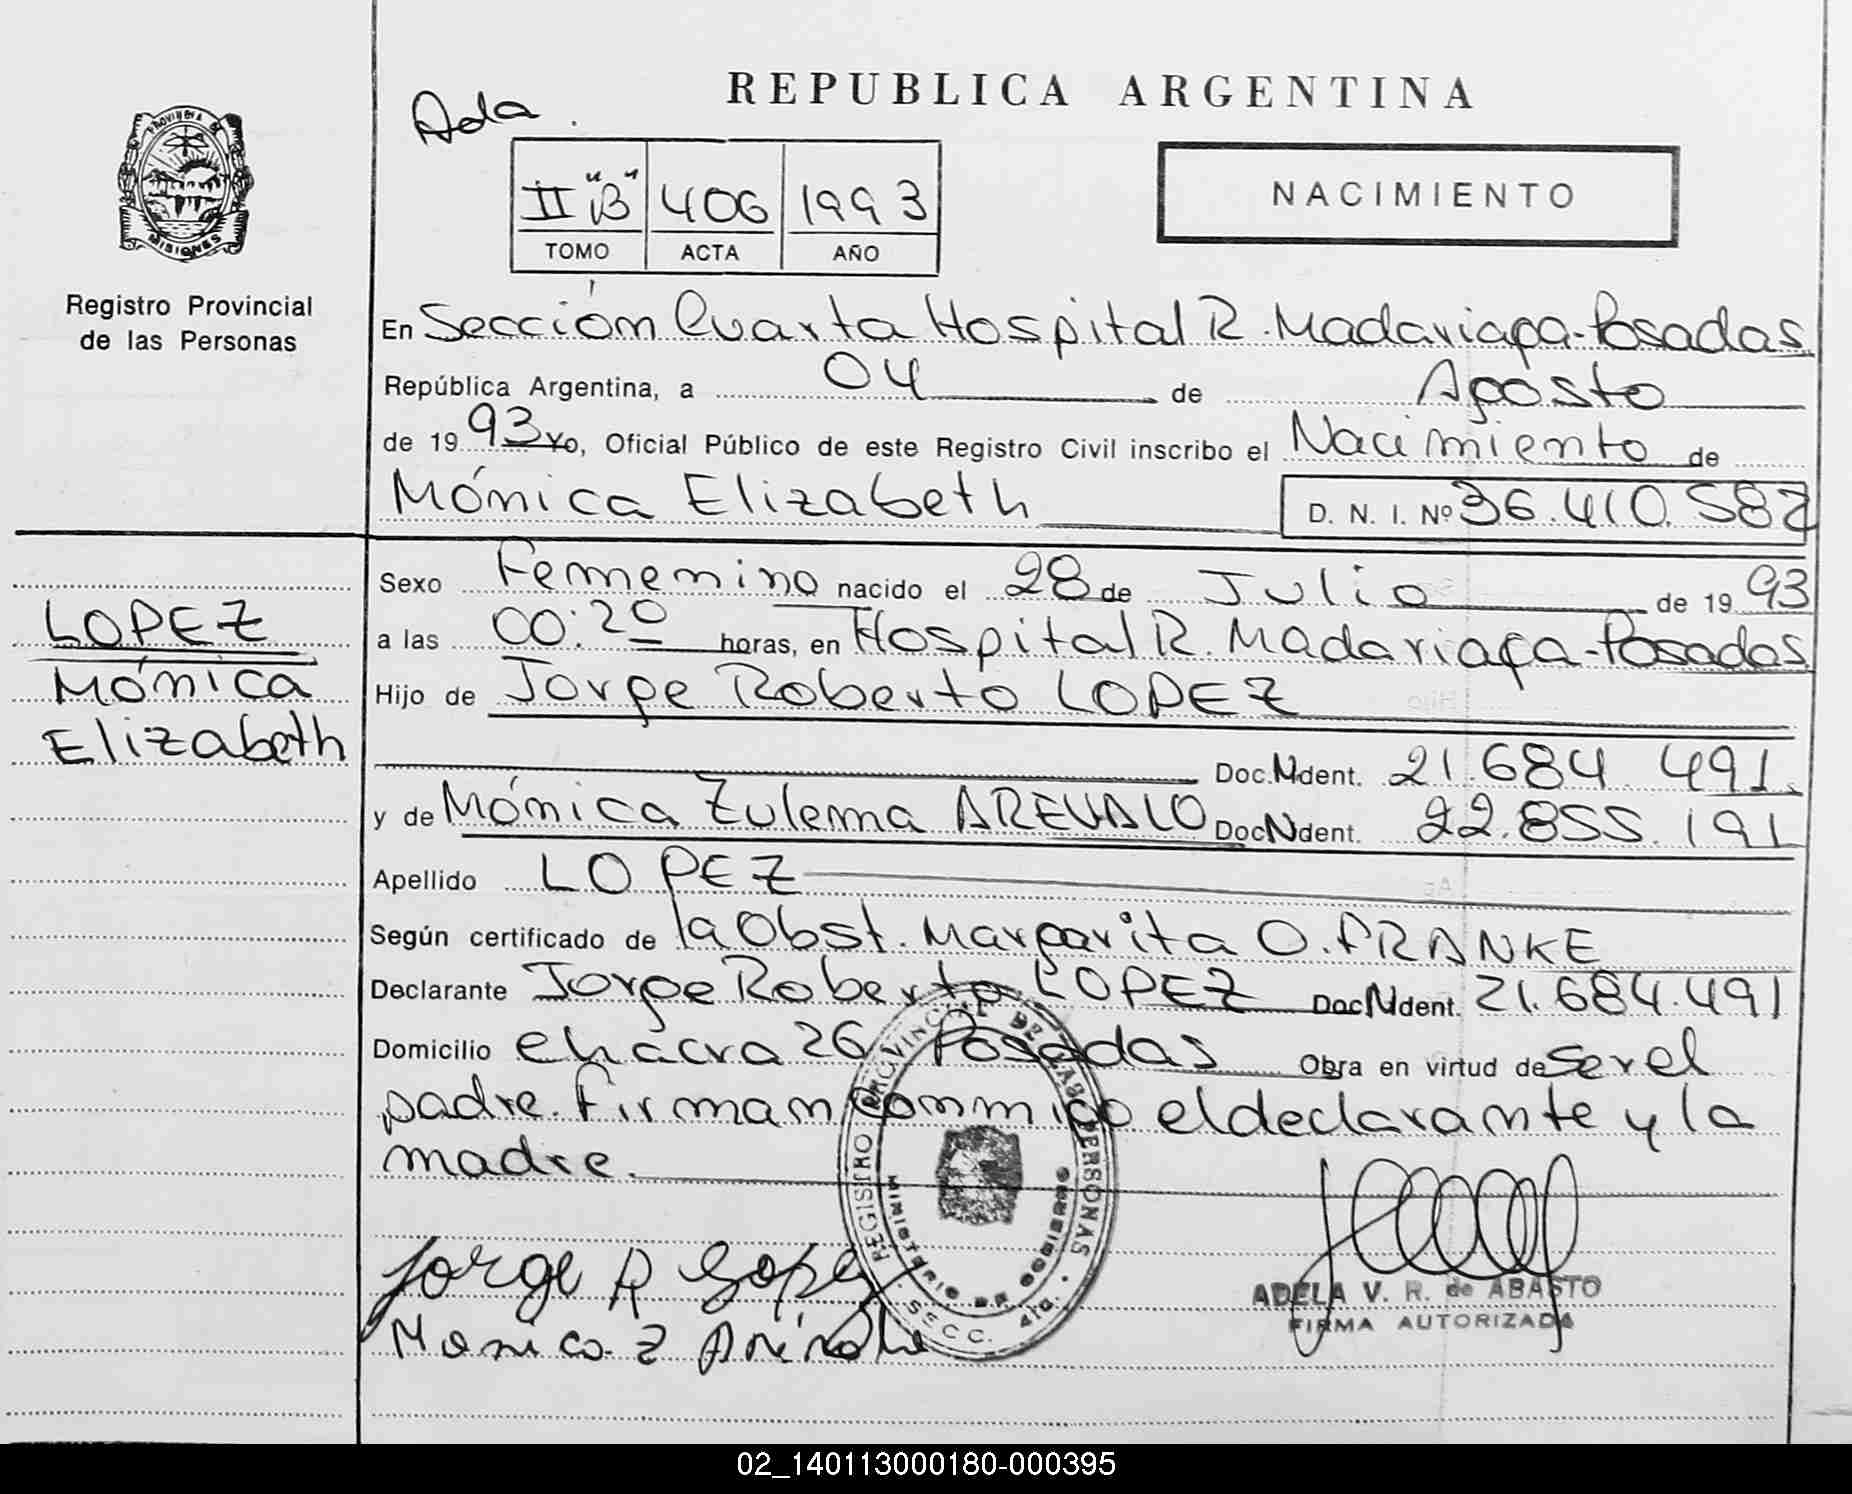 REPUBLICA ARGENTINA
Ada.
NACIMIENTO
II "B" 406 1993
TOMO ACTA AÑO
PROVINCIA DE MISIONES
Registro Provincial
de las Personas
En Sección Cuarta Hospital R. Madariaga-Posadas
República Argentina, a 04 de Agosto
de 19 93 Yo, Oficial Público de este Registro Civil inscribo el Nacimiento de
Mónica Elizabeth D. N. I. Nº 36.410.582
Sexo Femenino nacido el 28 de Julio de 19 93
a las 00:20 horas, en Hospital R. Madariaga-Posadas
Hijo de Jorge Roberto LOPEZ
Doc. N Ident. 21.684.491.
y de Mónica Zulema AREVALO Doc N Ident. 22.855.191
Apellido LOPEZ
Según certificado de la Obst. Margarita O. FRANKE
Declarante Jorge Roberto LOPEZ Doc N Ident. 21.684.491
Domicilio chacra 26 Posadas Obra en virtud de ser el
padre. Firman conmigo el declarante y la
madre.
LOPEZ
Mónica
Elizabeth
REGISTRO PROVINCIAL DE LAS PERSONAS
MINISTERIO DE GOBIERNO
SECC. 4ta.
Jorge R Lopez
Monica Z Arévalo
ADELA V. R. de ABASTO
FIRMA AUTORIZADA
02_140113000180-000395